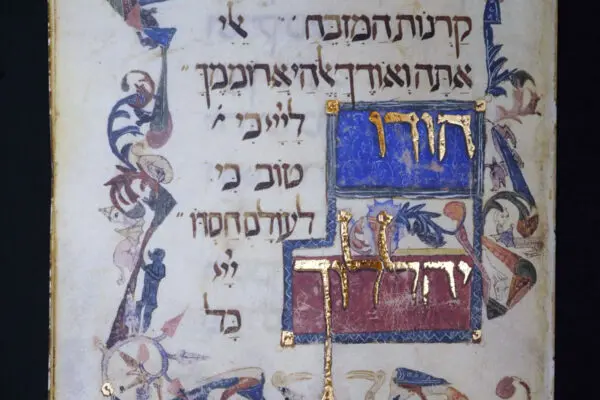 קרנות המזבח אלי
אתה ואודך אלהי ארוממך
הודו ליי כי
טוב כי
לעולם חסדו
יהללוך יי
כל